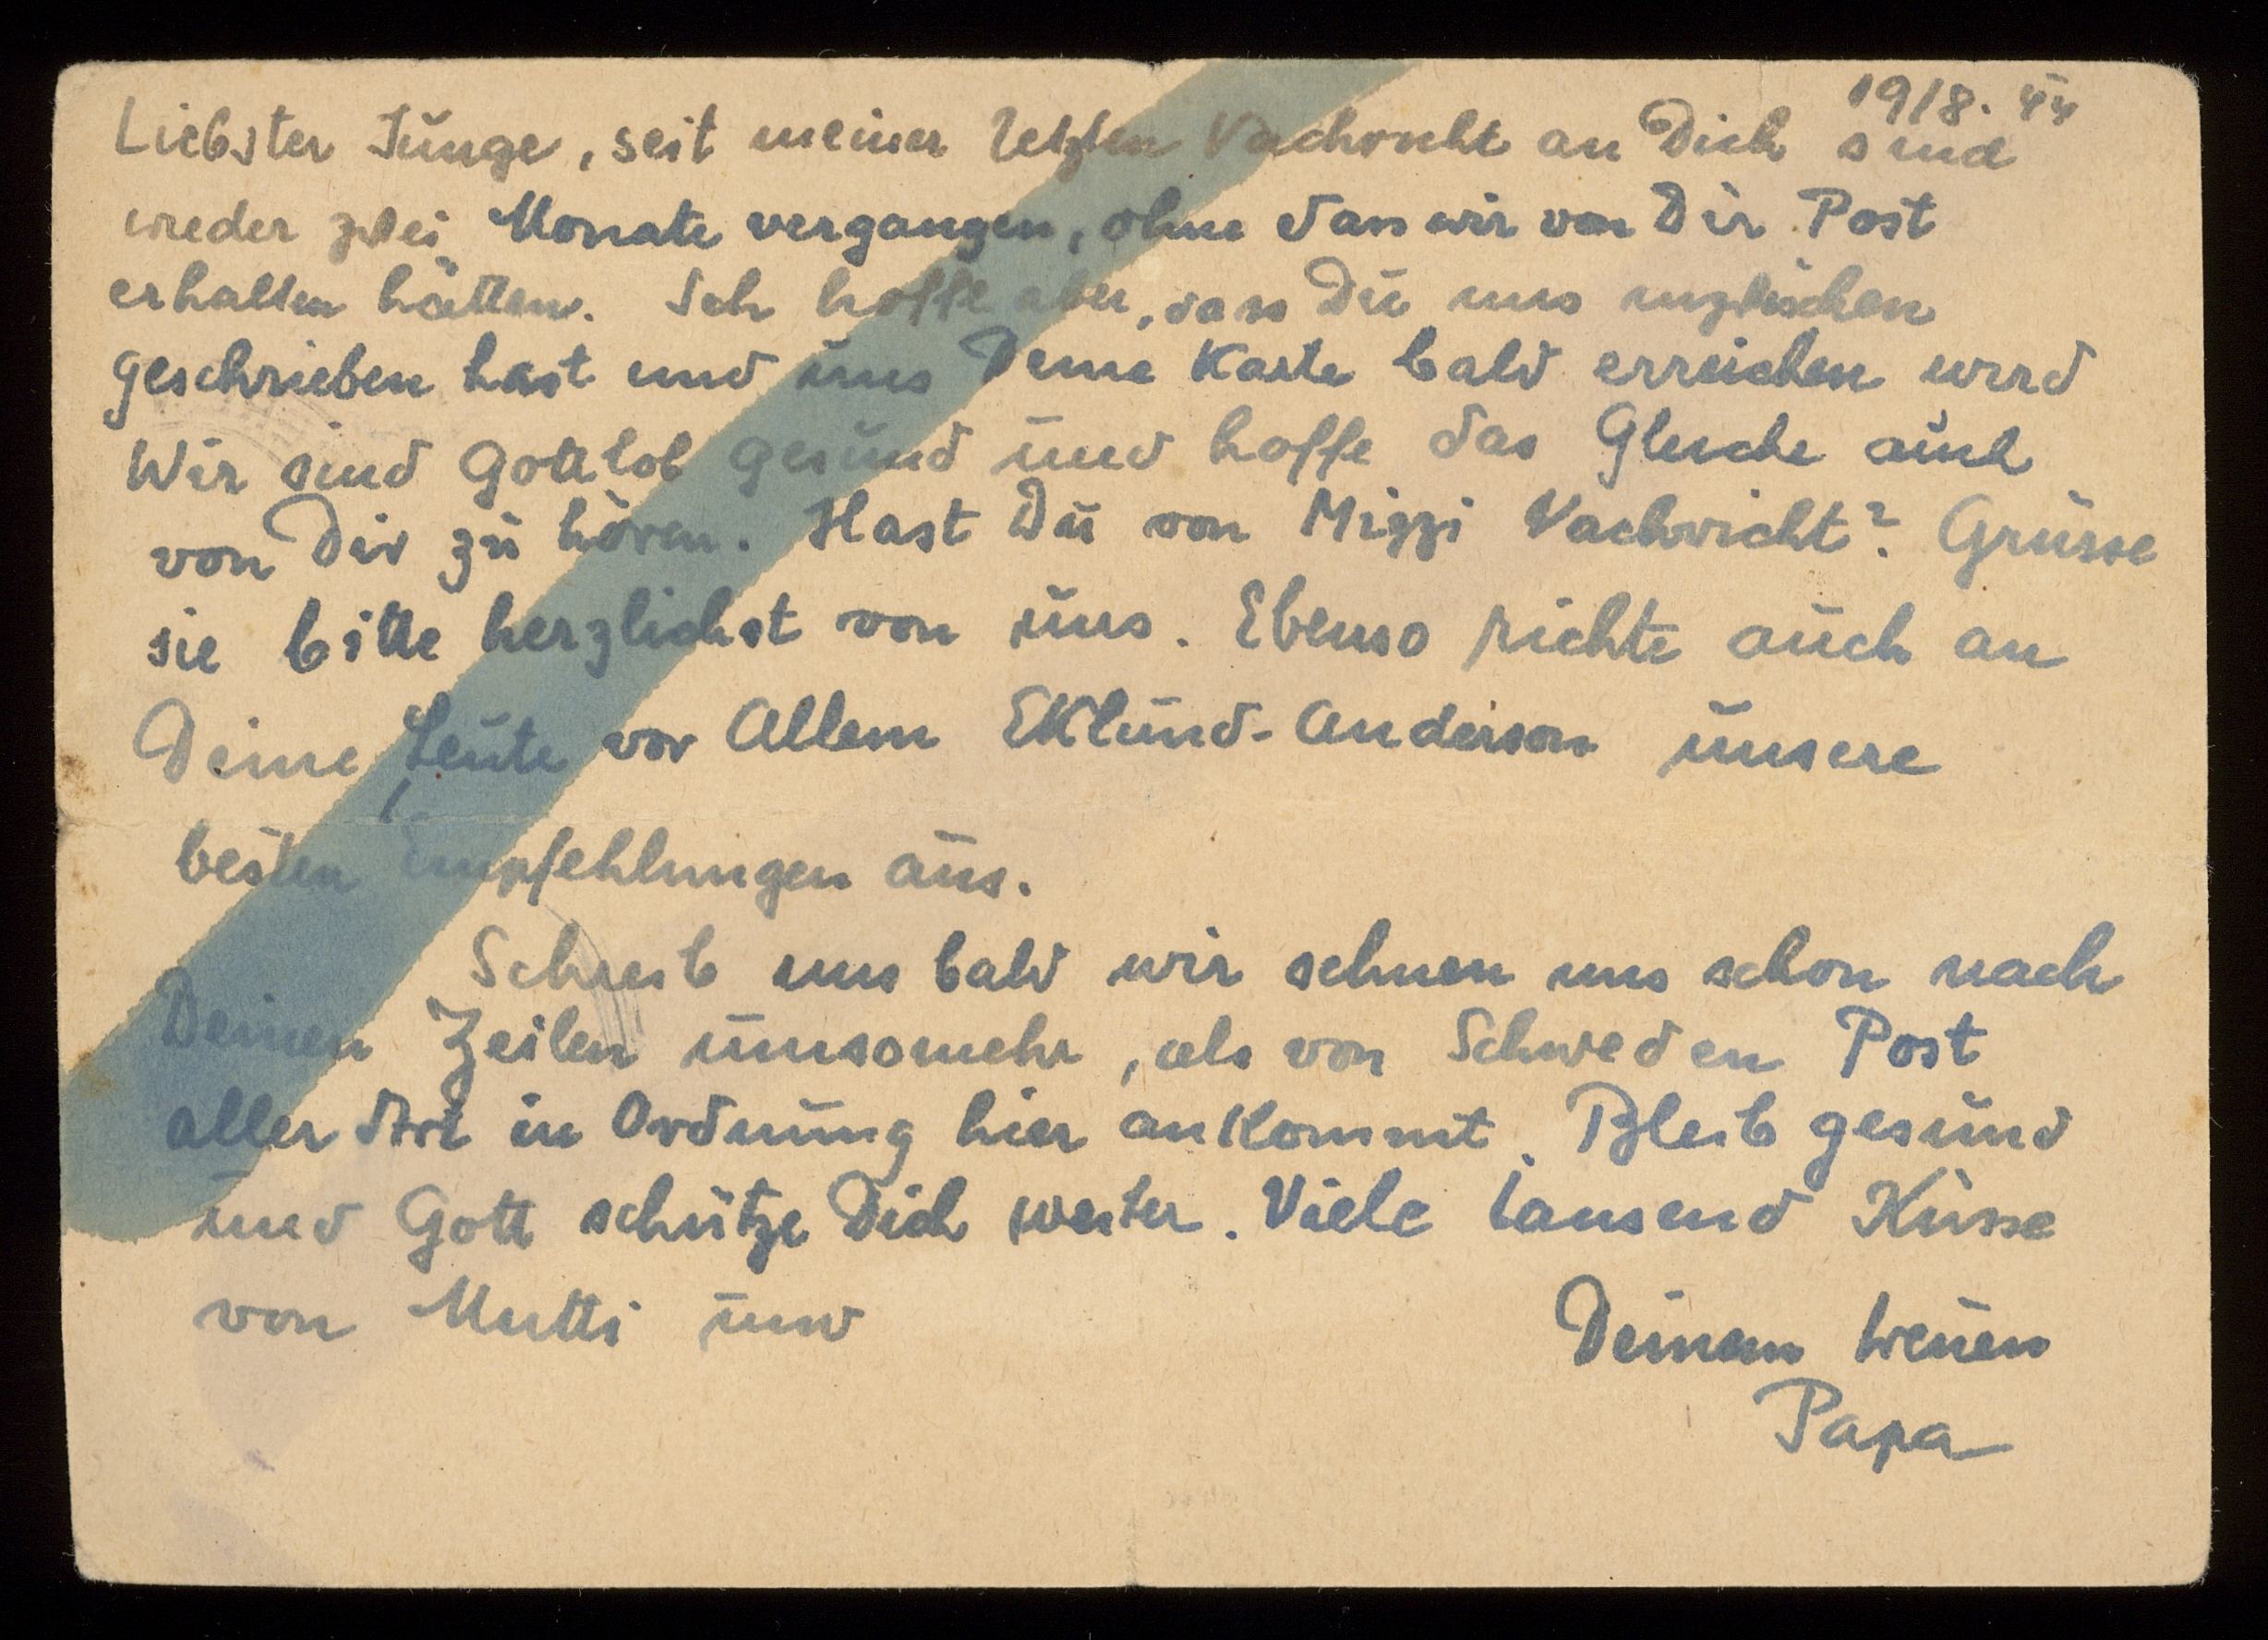 19/8. 44
Liebster Junge, seit meiner letzten Nachricht an Dich sind
wieder zwei Monate vergangen, ohne dass wir von Dir Post
erhalten hätten. Ich hoffe aber, dass Du uns inzwischen
geschrieben hast und uns Deine Karte bald erreichen wird
Wir sind Gottlob gesund und hoffe das Gleiche auch
von Dir zu hören. Hast Du von Mizzi Nachricht? Grüsse
sie bitte herzlichst von uns. Ebenso richte auch an
Deine Leute vor Allem Eklund-Anderson unsere
besten Empfehlungen aus.
Schreib uns bald wir sehnen uns schon nach
Deinen Zeilen umsomehr, als von Schweden Post
aller Art in Ordnung hier ankommt. Bleib gesund
und Gott schütze Dich weiter. Viele tausend Küsse
von Mutti und
Deinem treuen
Papa